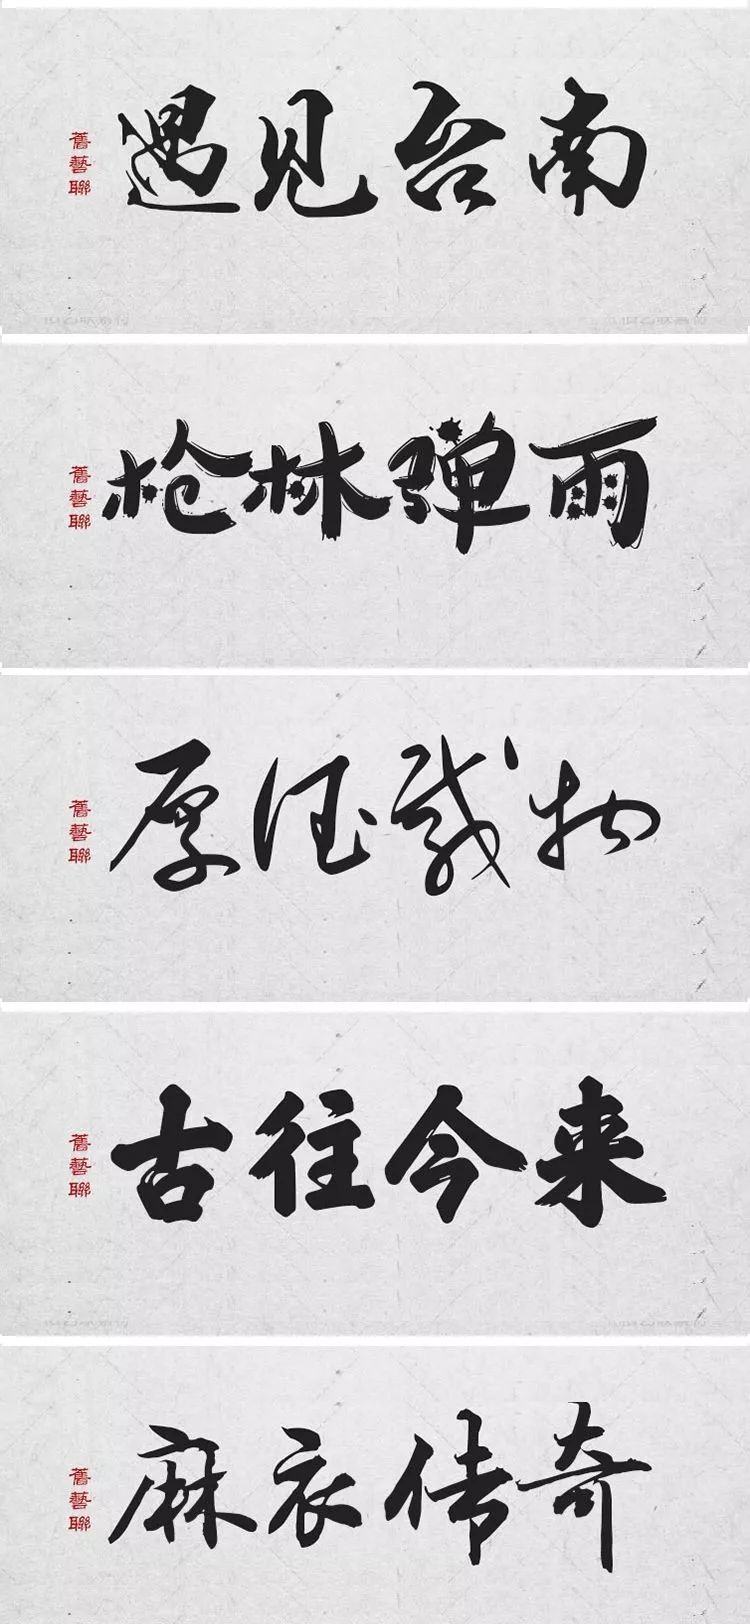 舊藝聯
遇见台南
舊藝聯
枪林弹雨
舊藝聯
厚德载物
舊藝聯
古往今来
舊藝聯
麻衣传奇